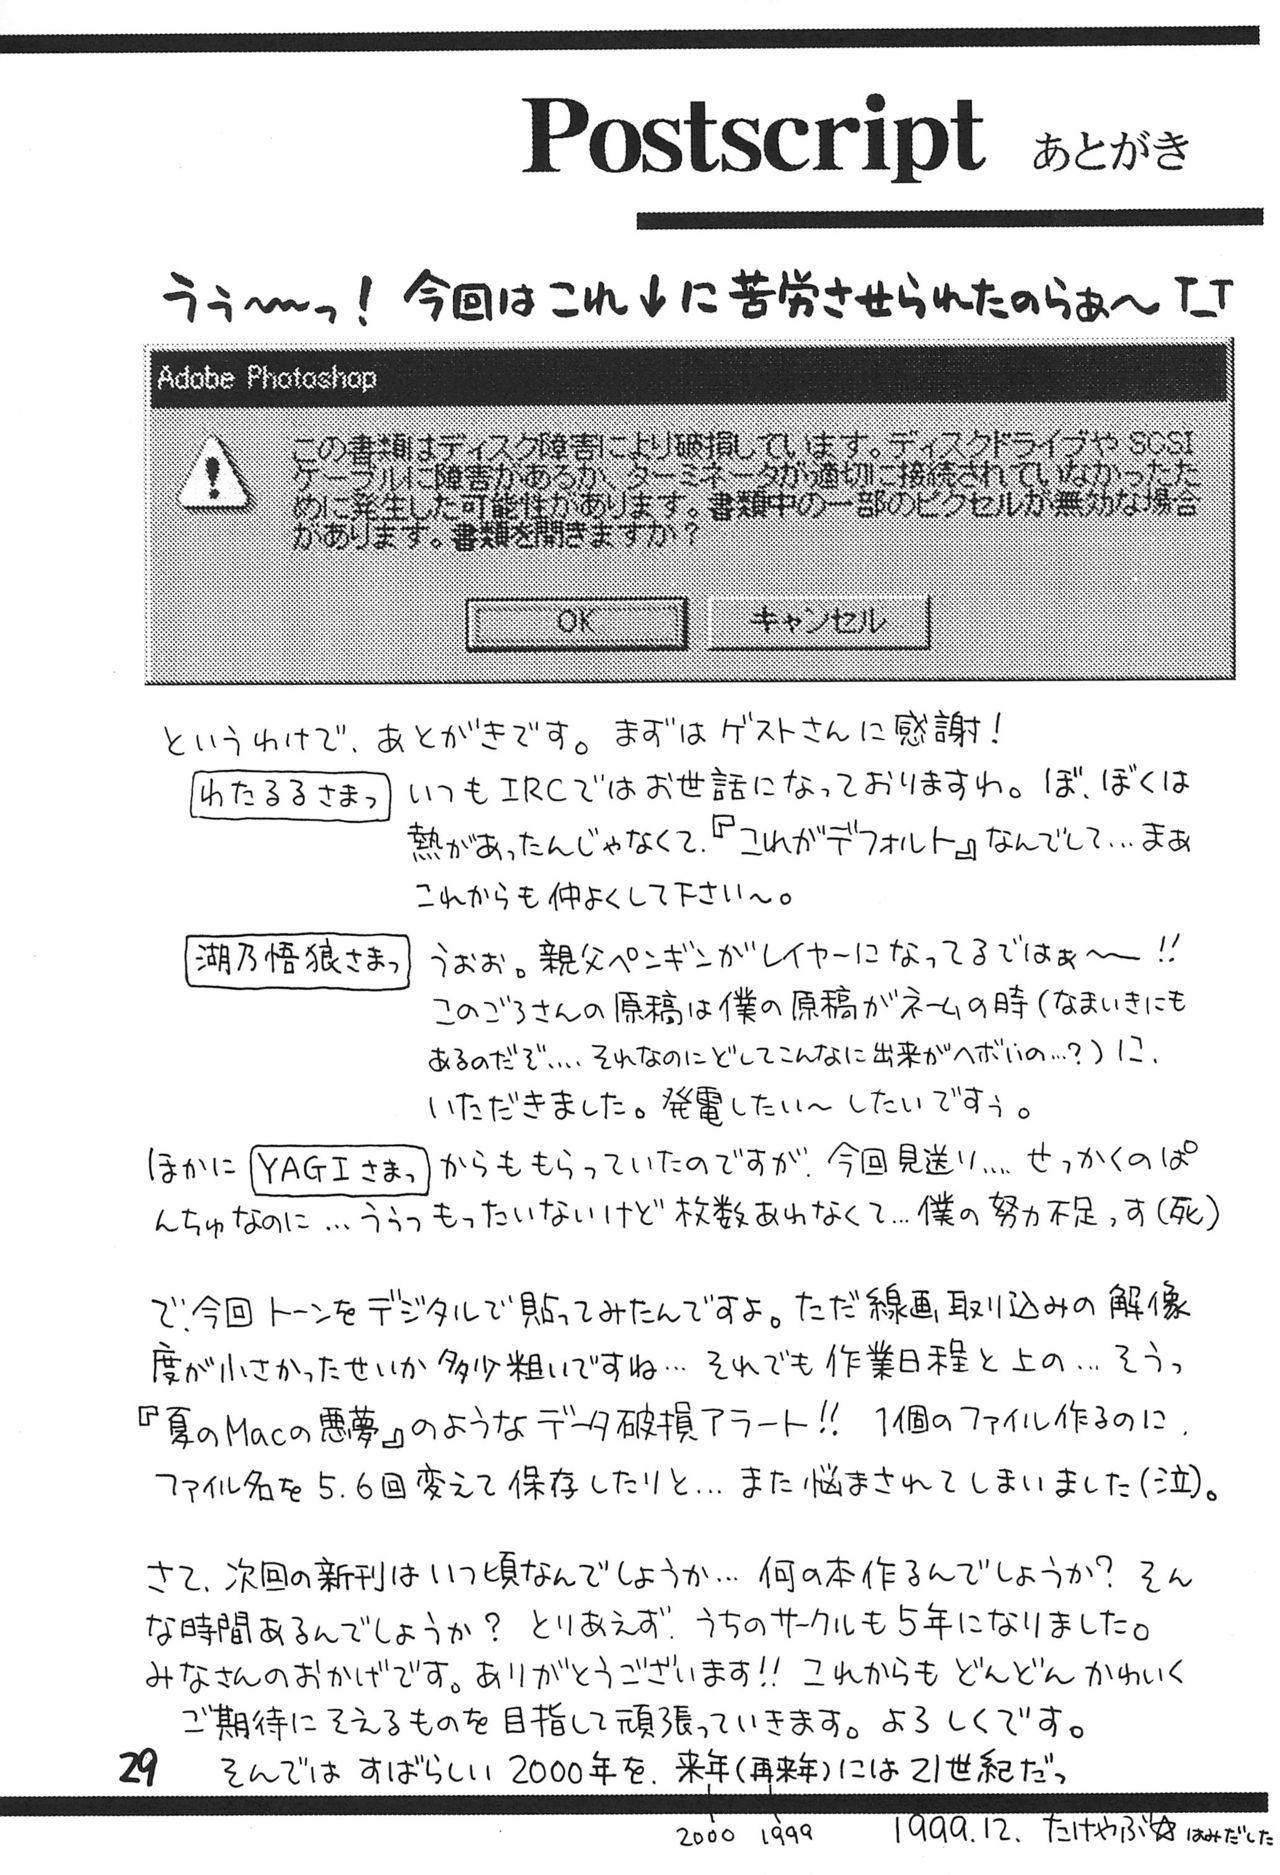 Postscript あとがき
うぅ〜〜っ! 今回はこれ↓に苦労させられたのらぁ〜 T_T
Adobe Photoshop
この書類はディスク障害により破損しています。ディスクドライブや SCSI
ケーブルに障害があるか、ターミネータが適切に接続されていなかったた
めに発生した可能性があります。書類中の一部のピクセルが無効な場合
があります。書類を開きますか?
OK キャンセル
というわけで、あとがきです。まずはゲストさんに感謝!
わたるるさまっ いつもIRCではお世話になっておりますわ。ぼ、ぼくは
熱があったんじゃなくて、『これがデフォルト』なんでして…まぁ
これからも仲よくして下さい〜。
湖乃悟狼さまっ うぉぉ。親父ペンギンがレイヤーになってるではぁ〜!!
このごろさんの原稿は僕の原稿がネームの時(なまいきにも
あるのだぞ…. それなのにどしてこんなに出来がヘボいの…?)に、
いただきました。発電したい〜したいですぅ。
ほかに YAGIさまっ からももらっていたのですが、今回見送り…. せっかくのぱ
んちゅなのに…ううっもったいないけど枚数あわなくて…僕の努力不足っす(死)
で、今回トーンをデジタルで貼ってみたんですよ。ただ線画取り込みの解像
度が小さかったせいか多少粗いですね… それでも作業日程と上の…そうっ
『夏のMacの悪夢』のようなデータ破損アラート!! 1個のファイル作るのに、
ファイル名を5.6回変えて保存したりと…また悩まされてしまいました(泣)。
さて、次回の新刊はいつ頃なんでしょうか… 何の本作るんでしょうか? そん
な時間あるんでしょうか? とりあえず、うちのサークルも5年になりました。
みなさんのおかげです。ありがとうございます!! これからもどんどんかわいく
ご期待にそえるものを目指して頑張っていきます。よろしくです。
29 そんではすばらしい2000年を、来年(再来年)には21世紀だっ
2000 1999 1999.12. たけやぶ☆ はみだした